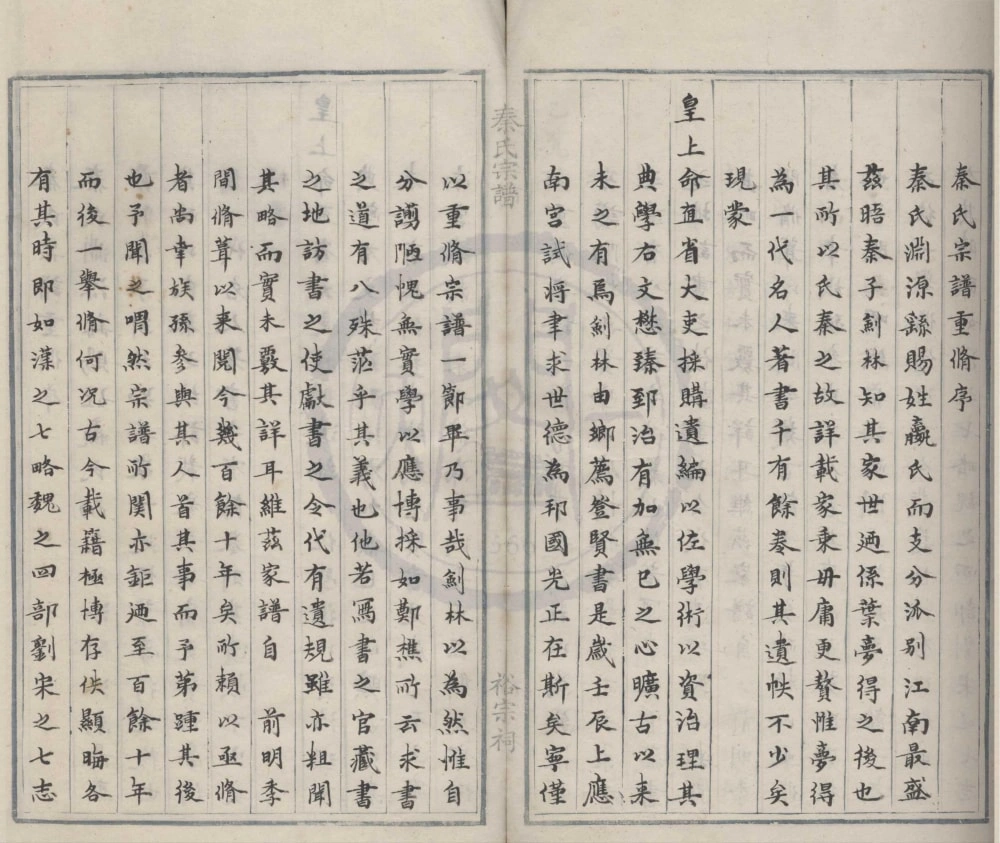 秦氏宗譜重脩序
秦氏淵源繇賜姓嬴氏而支分派别江南最盛
茲晤秦子釗林知其家世迺係葉夢得之後也
其所以氏秦之故詳載家乘毋庸更贅惟夢得
為一代名人著書千有餘卷則其遺帙不少矣
現蒙
皇上命直省大吏採購遺編以佐學術以資治理其
典學右文懋臻郅治有加無已之心曠古以来
未之有焉釗林由鄉薦登賢書是歲壬辰上應
南宮試将聿求世德為邦國光正在斯矣寧僅
秦氏宗譜
裕宗祠
以重脩宗譜一節畢乃事哉釗林以為然惟自
分謭陋愧無實學以應博採如鄭樵所云求書
之道有八殊茫乎其義也他若寫書之官藏書
之地訪書之使獻書之令代有遺規雖亦粗聞
其略而實未覈其詳耳維茲家譜自 前明季
間脩葺以来閱今幾百餘十年矣所賴以亟脩
者尚幸族孫参與其人首其事而予第踵其後
也予聞之喟然宗譜所関亦鉅迺至百餘十年
而後一舉脩何况古今載籍極博存佚顯晦各
有其時即如漢之七略魏之四部劉宋之七志